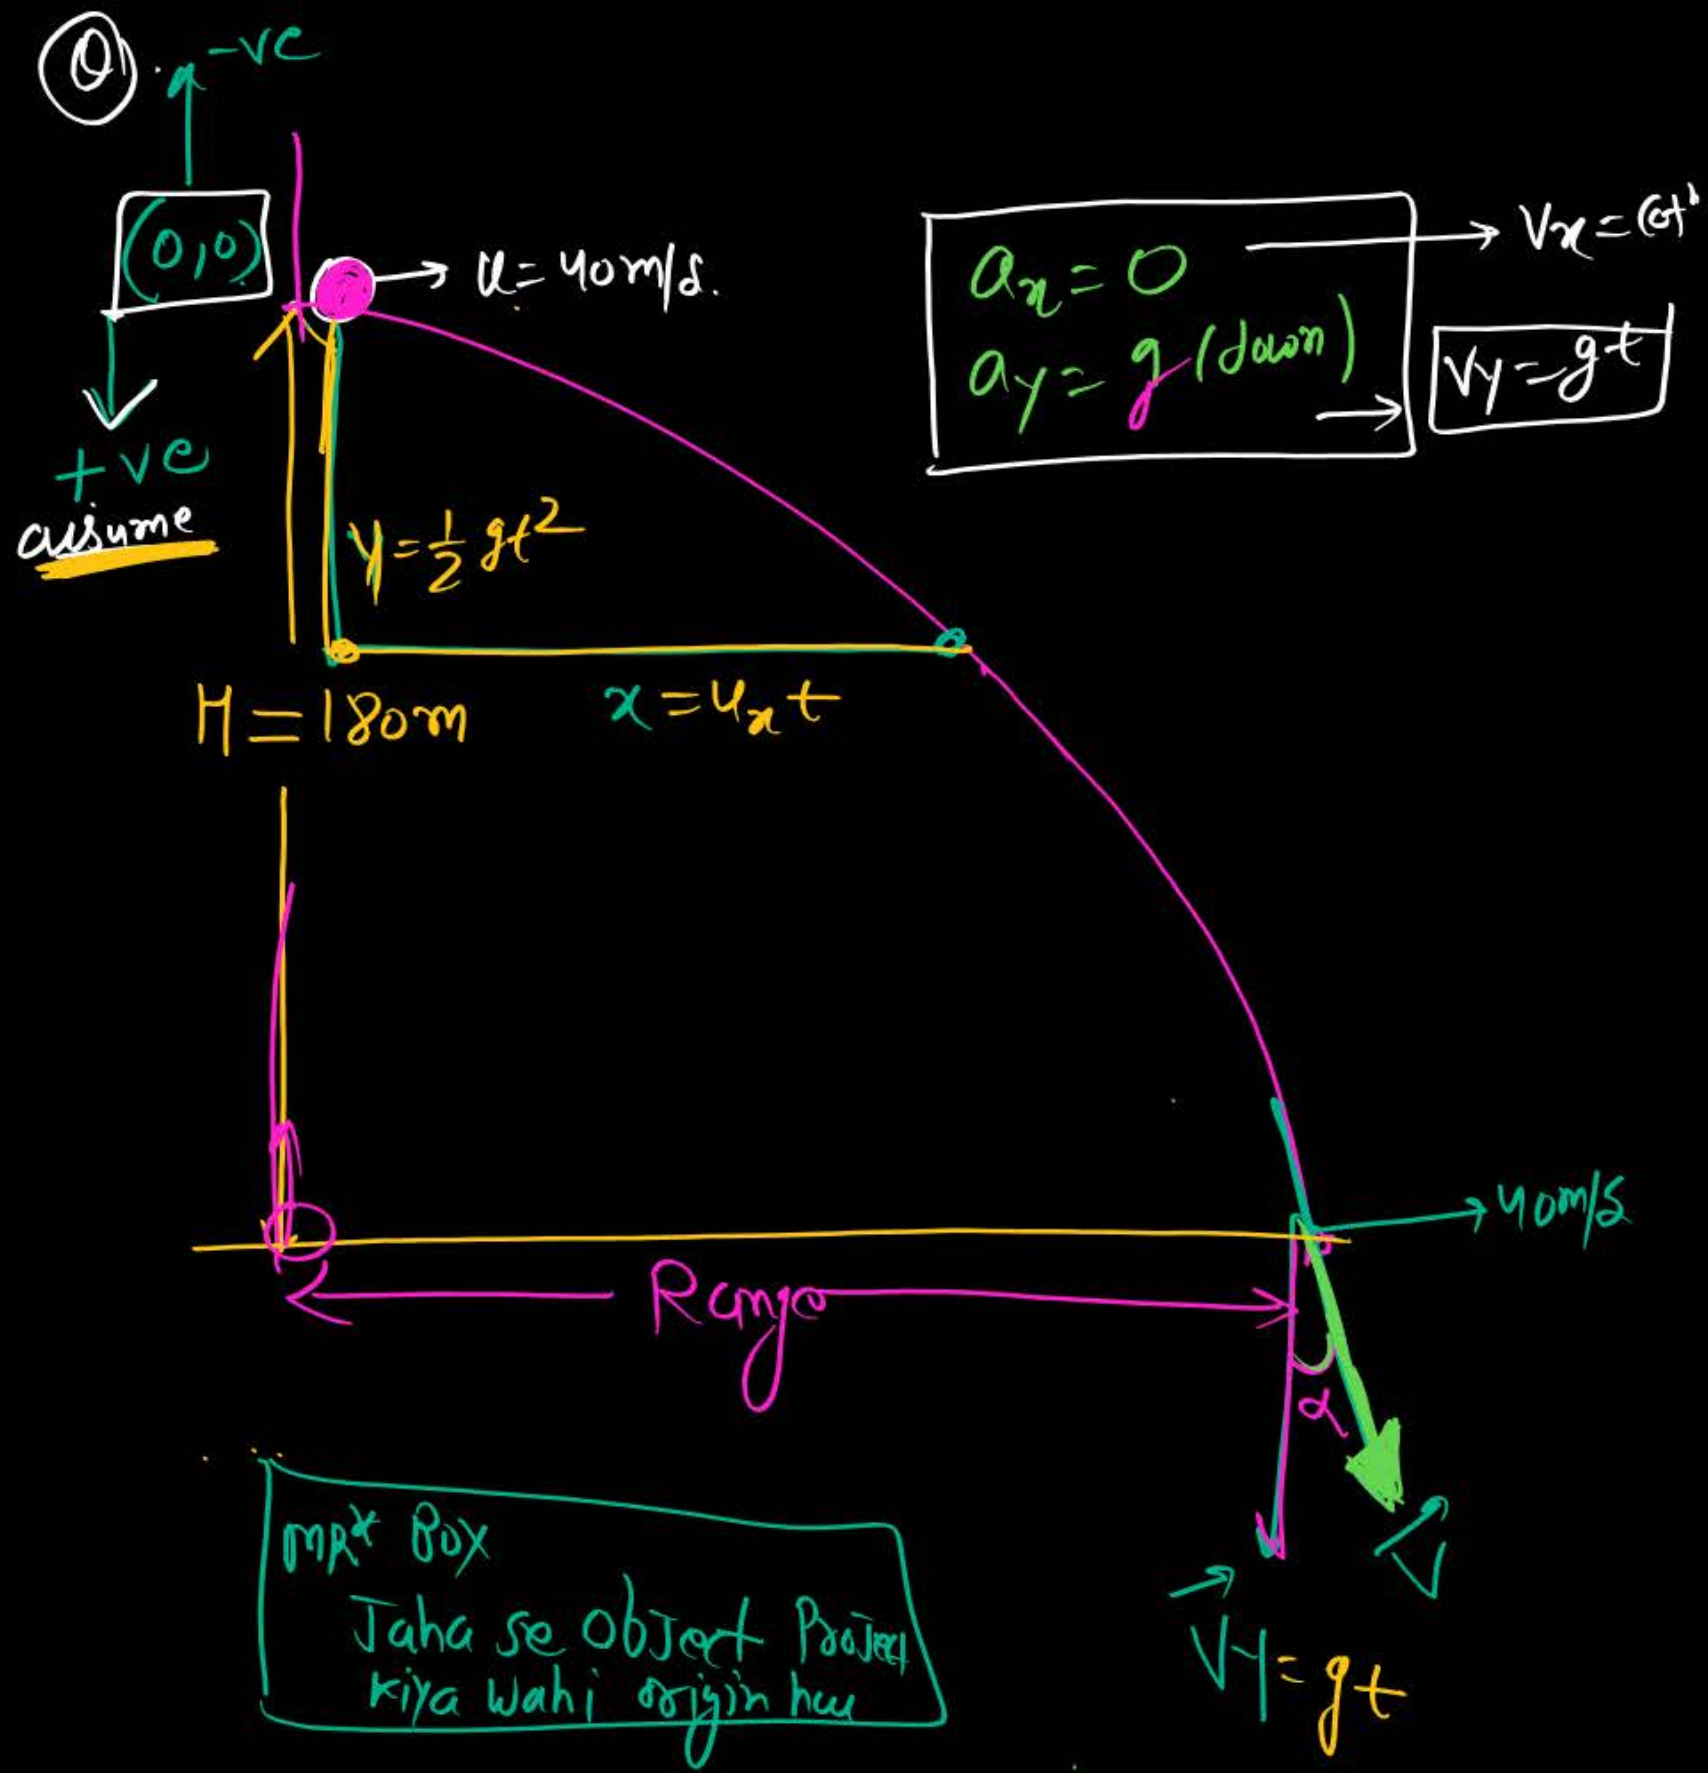 Q.
-ve
(0,0)
u = 40m/s.
+ve
assume
ax = 0
ay = g (down)
Vx = Cot
Vy = gt
y = 1/2 gt²
x = ux t
H = 180m
40m/s
Range
α
V
Vy = gt
MR* Box
Jaha se object Project
kiya wahi origin hai